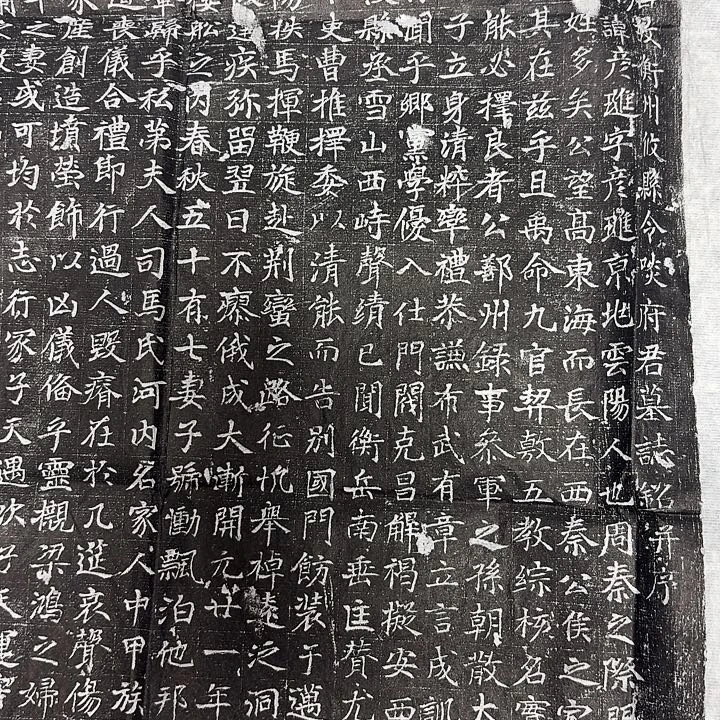 故衡州攸縣令啖府君墓誌銘并序
諱彥璡字彥璡京地雲陽人也周秦之際門
姓多矣公望高東海而長在西秦公侯之家
其在茲乎且禹命九官契敷五教綜核名實
能必擇良者公鄯州錄事參軍之孫朝散大
子立身清粹率禮恭謙布武有章立言成訓
聞乎鄉黨學優入仕門閥克昌解褐擬安西
縣丞雪山西峙聲績已聞衡岳南垂匡贊尤
史曹推擇委以清能而告別國門飭裝于邁
秩馬揮鞭旋赴荊蠻之路征帆舉棹遠泛洞
疾弥留翌日不瘳俄成大漸開元廿一年
舩之內春秋五十有七妻子號慟飄泊他邦
歸乎私第夫人司馬氏河內名家人中甲族
喪儀合禮即行過人毀瘠在於几筵哀聲傷
產創造墳塋飾以凶儀俻乎靈櫬梁鴻之婦
之妻或可均於志行冢子天遇次子天